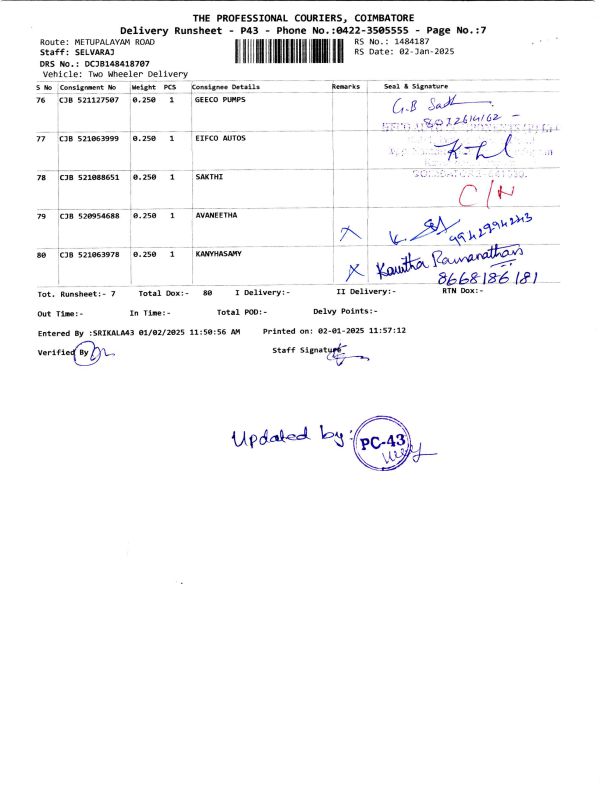 THE PROFESSIONAL COURIERS, COIMBATORE
Delivery Runsheet - P43 - Phone No.:0422-3505555 - Page No.:7
Route: METUPALAYAM ROAD RS No.: 1484187
Staff: SELVARAJ RS Date: 02-Jan-2025
DRS No.: DCJB148418707
Vehicle: Two Wheeler Delivery
S No Consignment No Weight PCS Consignee Details Remarks Seal & Signature
76 CJB 521127507 0.250 1 GEECO PUMPS G.B
77 CJB 521063999 0.250 1 EIFCO AUTOS
78 CJB 521088651 0.250 1 SAKTHI C/N
79 CJB 520954688 0.250 1 AVANEETHA X 9942994243
80 CJB 521063978 0.250 1 KANYHASAMY X Kavitha Ramanathan
8668186181
Tot. Runsheet:- 7 Total Dox:- 80 I Delivery:- II Delivery:- RTN Dox:-
Out Time:- In Time:- Total POD:- Delvy Points:-
Entered By :SRIKALA43 01/02/2025 11:50:56 AM Printed on: 02-01-2025 11:57:12
Verified By Staff Signature
Updated by: PC-43